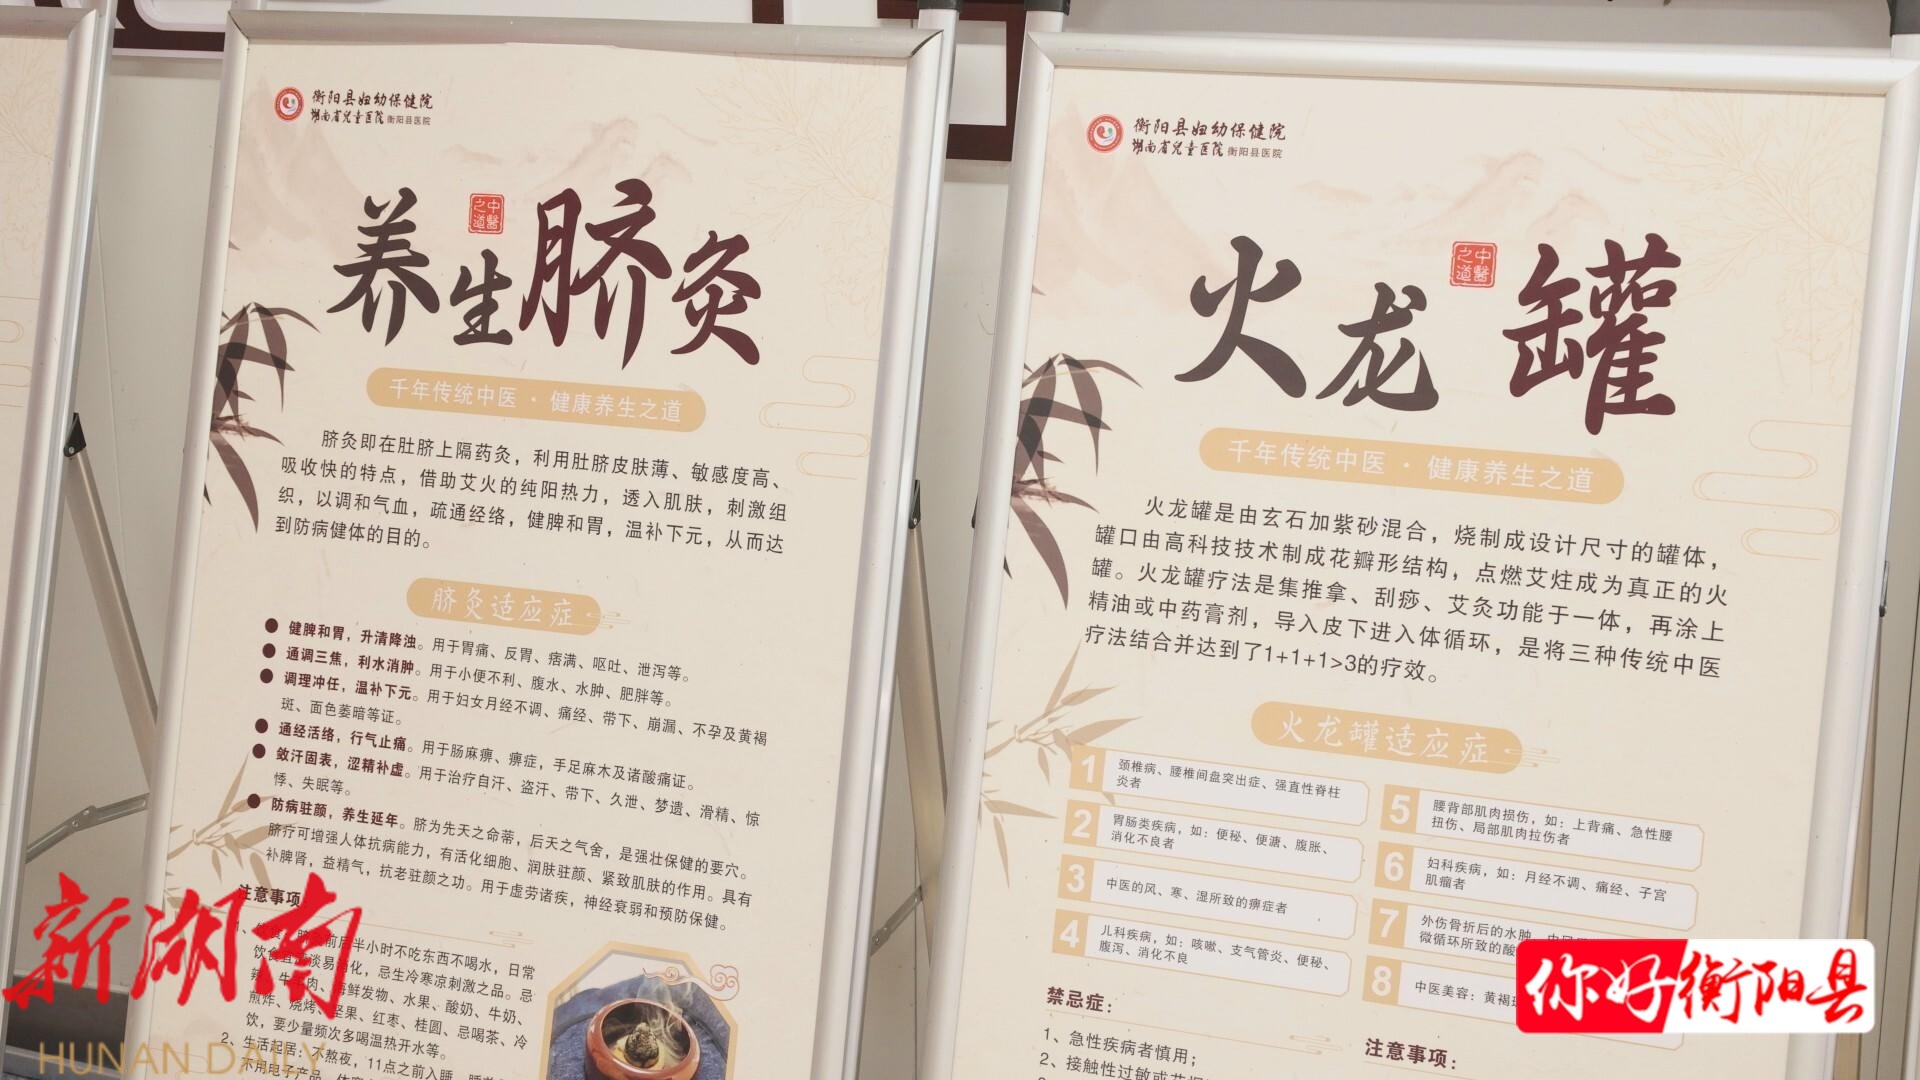 衡阳县妇幼保健院
湖南省儿童医院 衡阳县医院
养生脐灸
中醫之道
千年传统中医·健康养生之道
脐灸即在肚脐上隔药灸，利用肚脐皮肤薄、敏感度高、
吸收快的特点，借助艾火的纯阳热力，透入肌肤，刺激组
织，以调和气血，疏通经络，健脾和胃，温补下元，从而达
到防病健体的目的。
脐灸适应症
健脾和胃，升清降浊。用于胃痛、反胃、痞满、呕吐、泄泻等。
通调三焦，利水消肿。用于小便不利、腹水、水肿、肥胖等。
调理冲任，温补下元。用于妇女月经不调、痛经、带下、崩漏、不孕及黄褐
斑、面色萎暗等证。
通经活络，行气止痛。用于肠麻痹、痹症，手足麻木及诸酸痛证。
敛汗固表，涩精补虚。用于治疗自汗、盗汗、带下、久泄、梦遗、滑精、惊
悸、失眠等。
防病驻颜，养生延年。脐为先天之命蒂，后天之气舍，是强壮保健的要穴。
脐疗可增强人体抗病能力，有活化细胞、润肤驻颜、紧致肌肤的作用。具有
补脾肾，益精气，抗老驻颜之功。用于虚劳诸疾，神经衰弱和预防保健。
注意事项
前后半小时不吃东西不喝水，日常
饮食宜清淡易消化，忌生冷寒凉刺激之品。忌
牛羊肉、海鲜发物、水果、酸奶、牛奶、
煎炸、烧烤、坚果、红枣、桂圆、忌喝茶、冷
饮，要少量频次多喝温热开水等。
2、生活起居：不熬夜，11点之前入睡，
衡阳县妇幼保健院
湖南省儿童医院 衡阳县医院
火龙罐
中醫之道
千年传统中医·健康养生之道
火龙罐是由玄石加紫砂混合，烧制成设计尺寸的罐体，
罐口由高科技技术制成花瓣形结构，点燃艾炷成为真正的火
罐。火龙罐疗法是集推拿、刮痧、艾灸功能于一体，再涂上
精油或中药膏剂，导入皮下进入体循环，是将三种传统中医
疗法结合并达到了1+1+1>3的疗效。
火龙罐适应症
1 颈椎病、腰椎间盘突出症、强直性脊柱
炎者
2 胃肠类疾病，如：便秘、便溏、腹胀、
消化不良者
3 中医的风、寒、湿所致的痹症者
4 儿科疾病，如：咳嗽、支气管炎、便秘、
腹泻、消化不良
5 腰背部肌肉损伤，如：上背痛、急性腰
扭伤、局部肌肉拉伤者
6 妇科疾病，如：月经不调、痛经、子宫
肌瘤者
7 外伤骨折后的水肿，中风
微循环所致的酸
8 中医美容：黄褐
禁忌症：
1、急性疾病者慎用；
2、接触性过敏或
注意事项：
新湖南
HUNAN DAILY
你好衡阳县